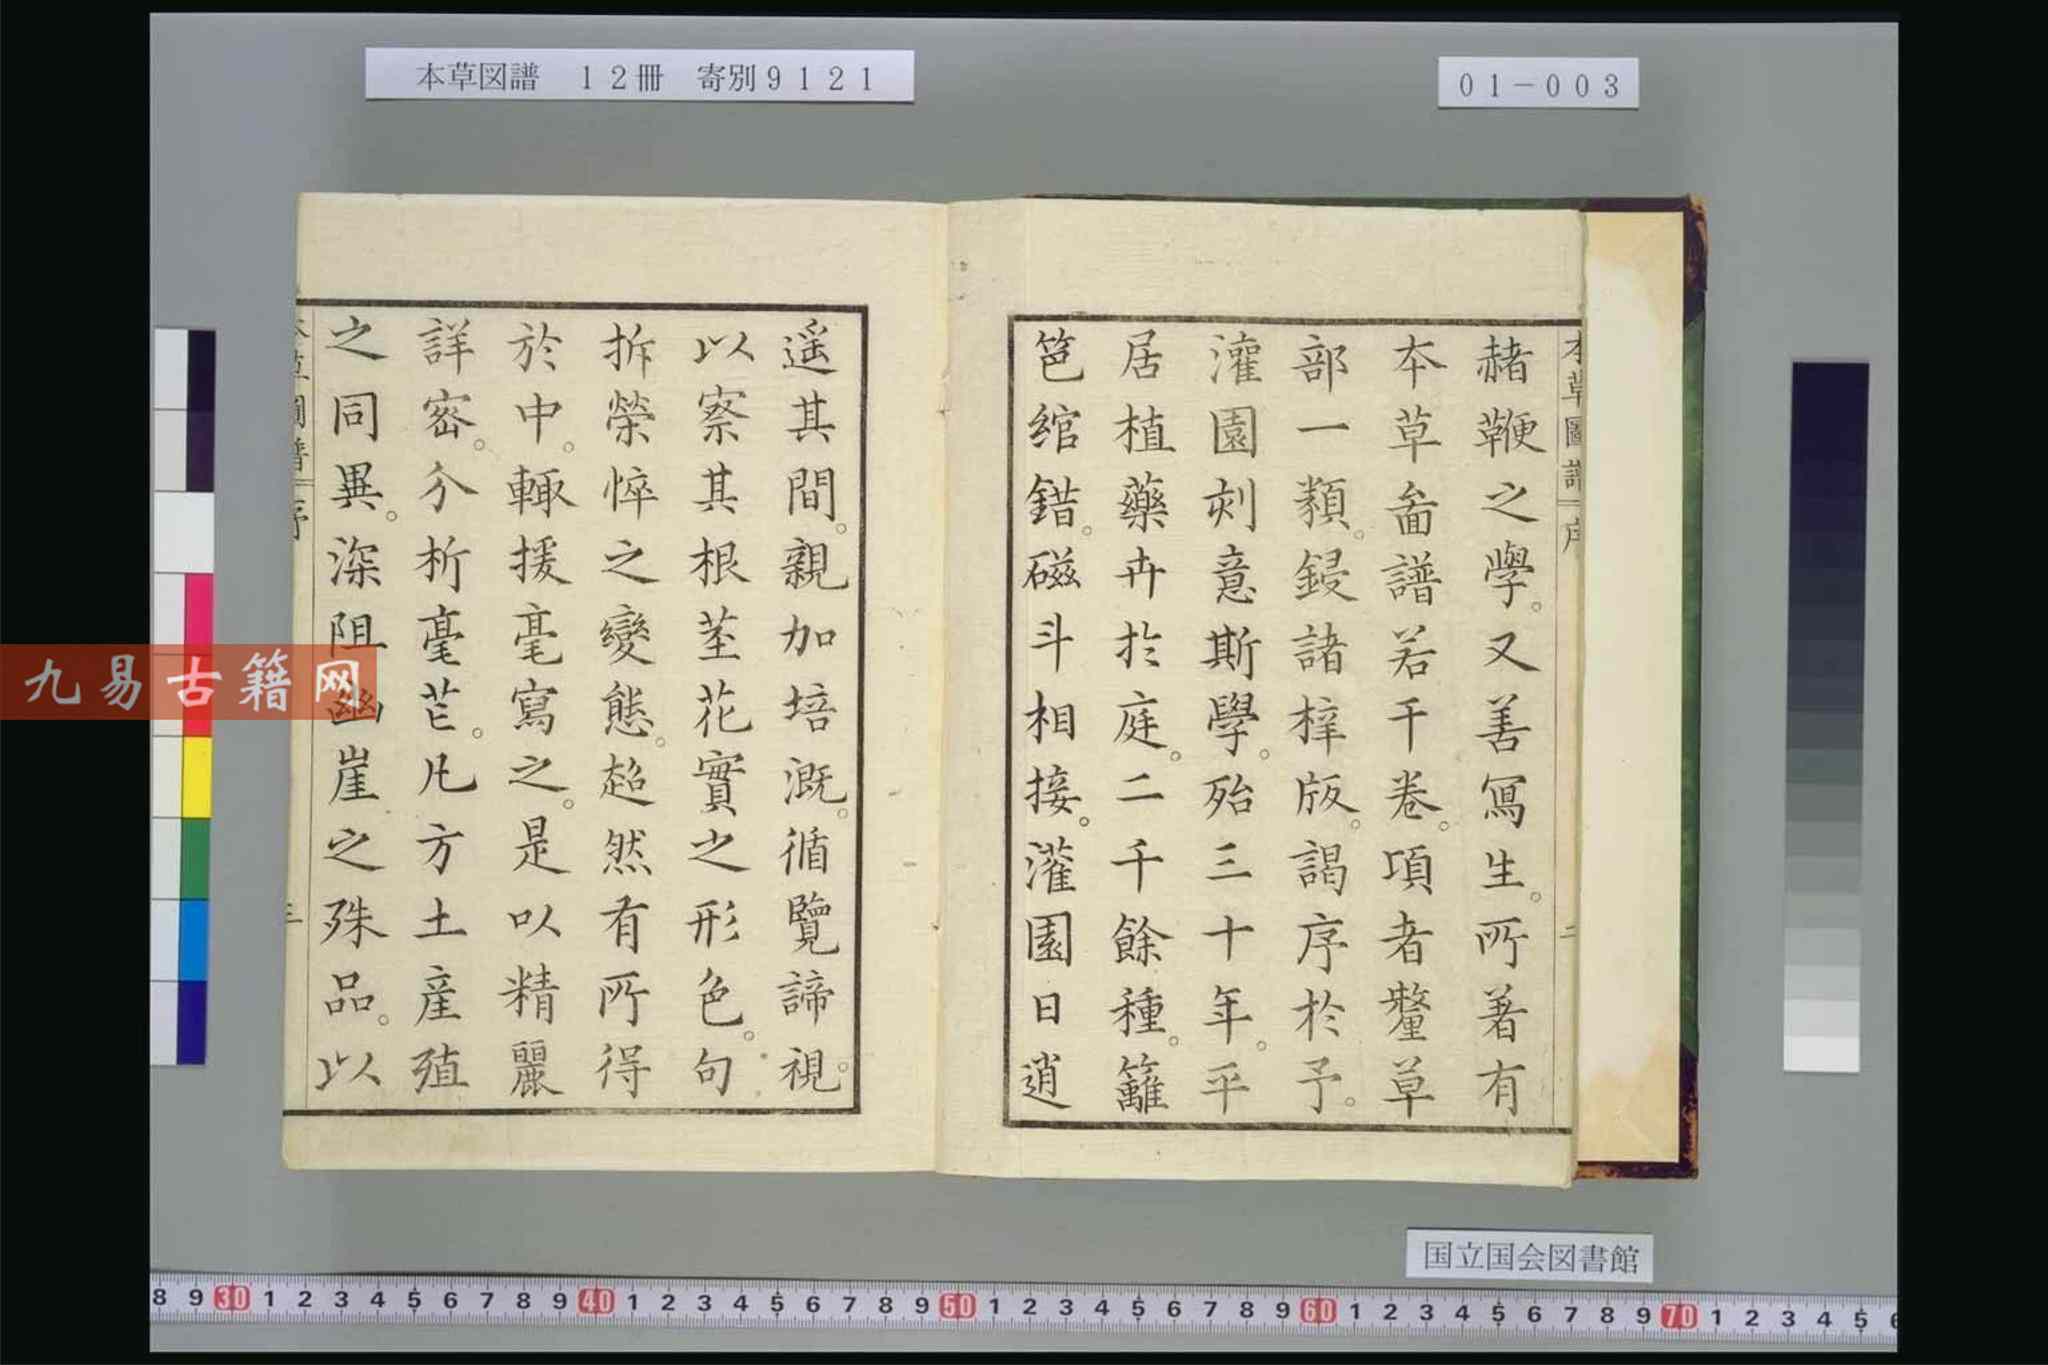 本草図譜　12冊　寄別9121
01-003
本草圖譜 序 二
赭鞭之學。又善寫生。所著有
本草畣譜若干卷。項者釐草
部一類。鋟諸梓版。謁序於予。
灌園刻意斯學。殆三十年。平
居植藥卉於庭。二千餘種。籬
笆綰錯。磁斗相接。灌園日逍
遥其間。親加培溉。循覽諦視。
以察其根茎花實之形色。句
拆榮悴之變態。超然有所得
於中。輙援毫寫之。是以精麗
詳密。分析毫芒。凡方土産殖
之同異。深阻幽崖之殊品。以
本草圖譜 序 三
九易古籍网
国立国会図書館
8 9 30 1 2 3 4 5 6 7 8 9 40 1 2 3 4 5 6 7 8 9 50 1 2 3 4 5 6 7 8 9 60 1 2 3 4 5 6 7 8 9 70 1 2 3 4 5 6